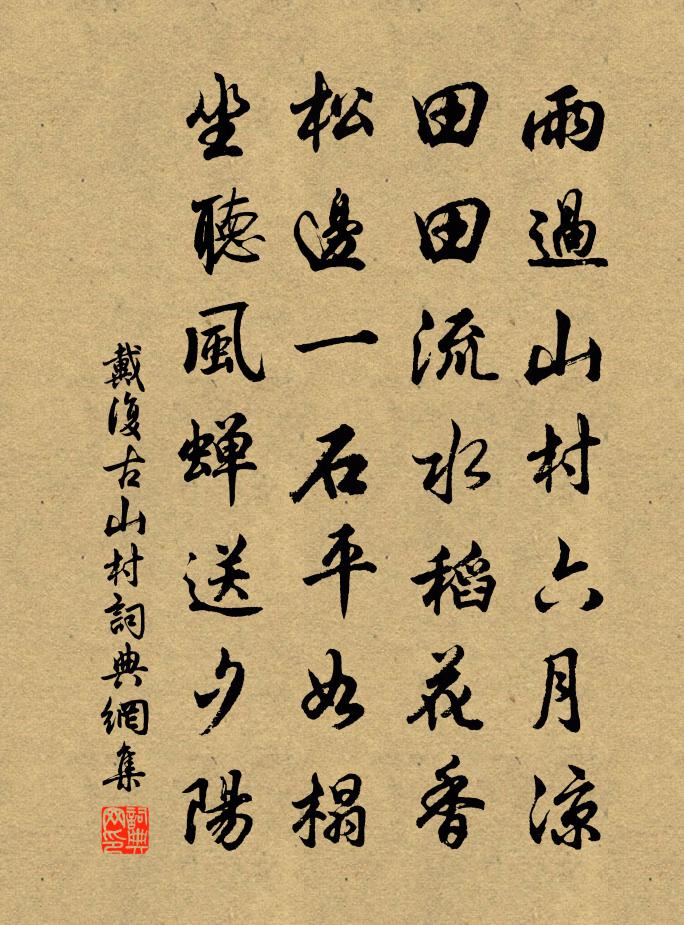 雨過山村六月涼
田田流水稻花香
松邊一石平如榻
坐聽風蟬送夕陽
戴復古山村詞典網集
詞典網印